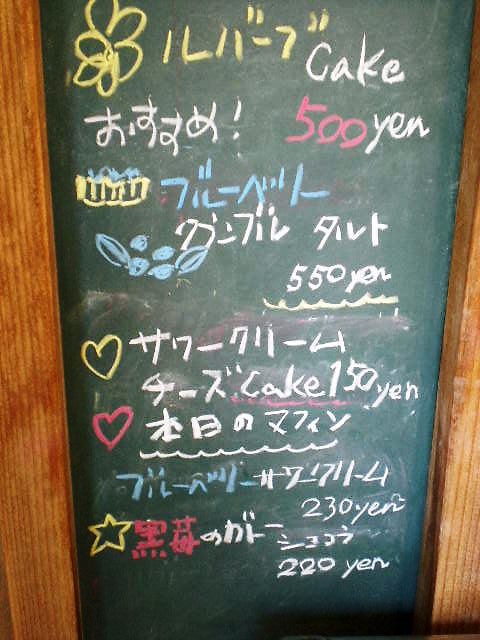 ルバーブ Cake
おすすめ! 500yen
ブルーベリー
クランブル タルト
550yen
サワークリーム
チーズCake 150yen
本日のマフィン
ブルーベリーサワークリーム
230yen
黒苺のガトー
ショコラ
220 yen